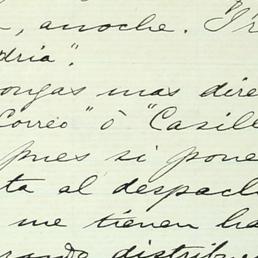 , anoche. "Tr
dria".
ongas mas dire
Correo" ò "Casill
pues si pone
ta al despach
me tienen ha
distribu